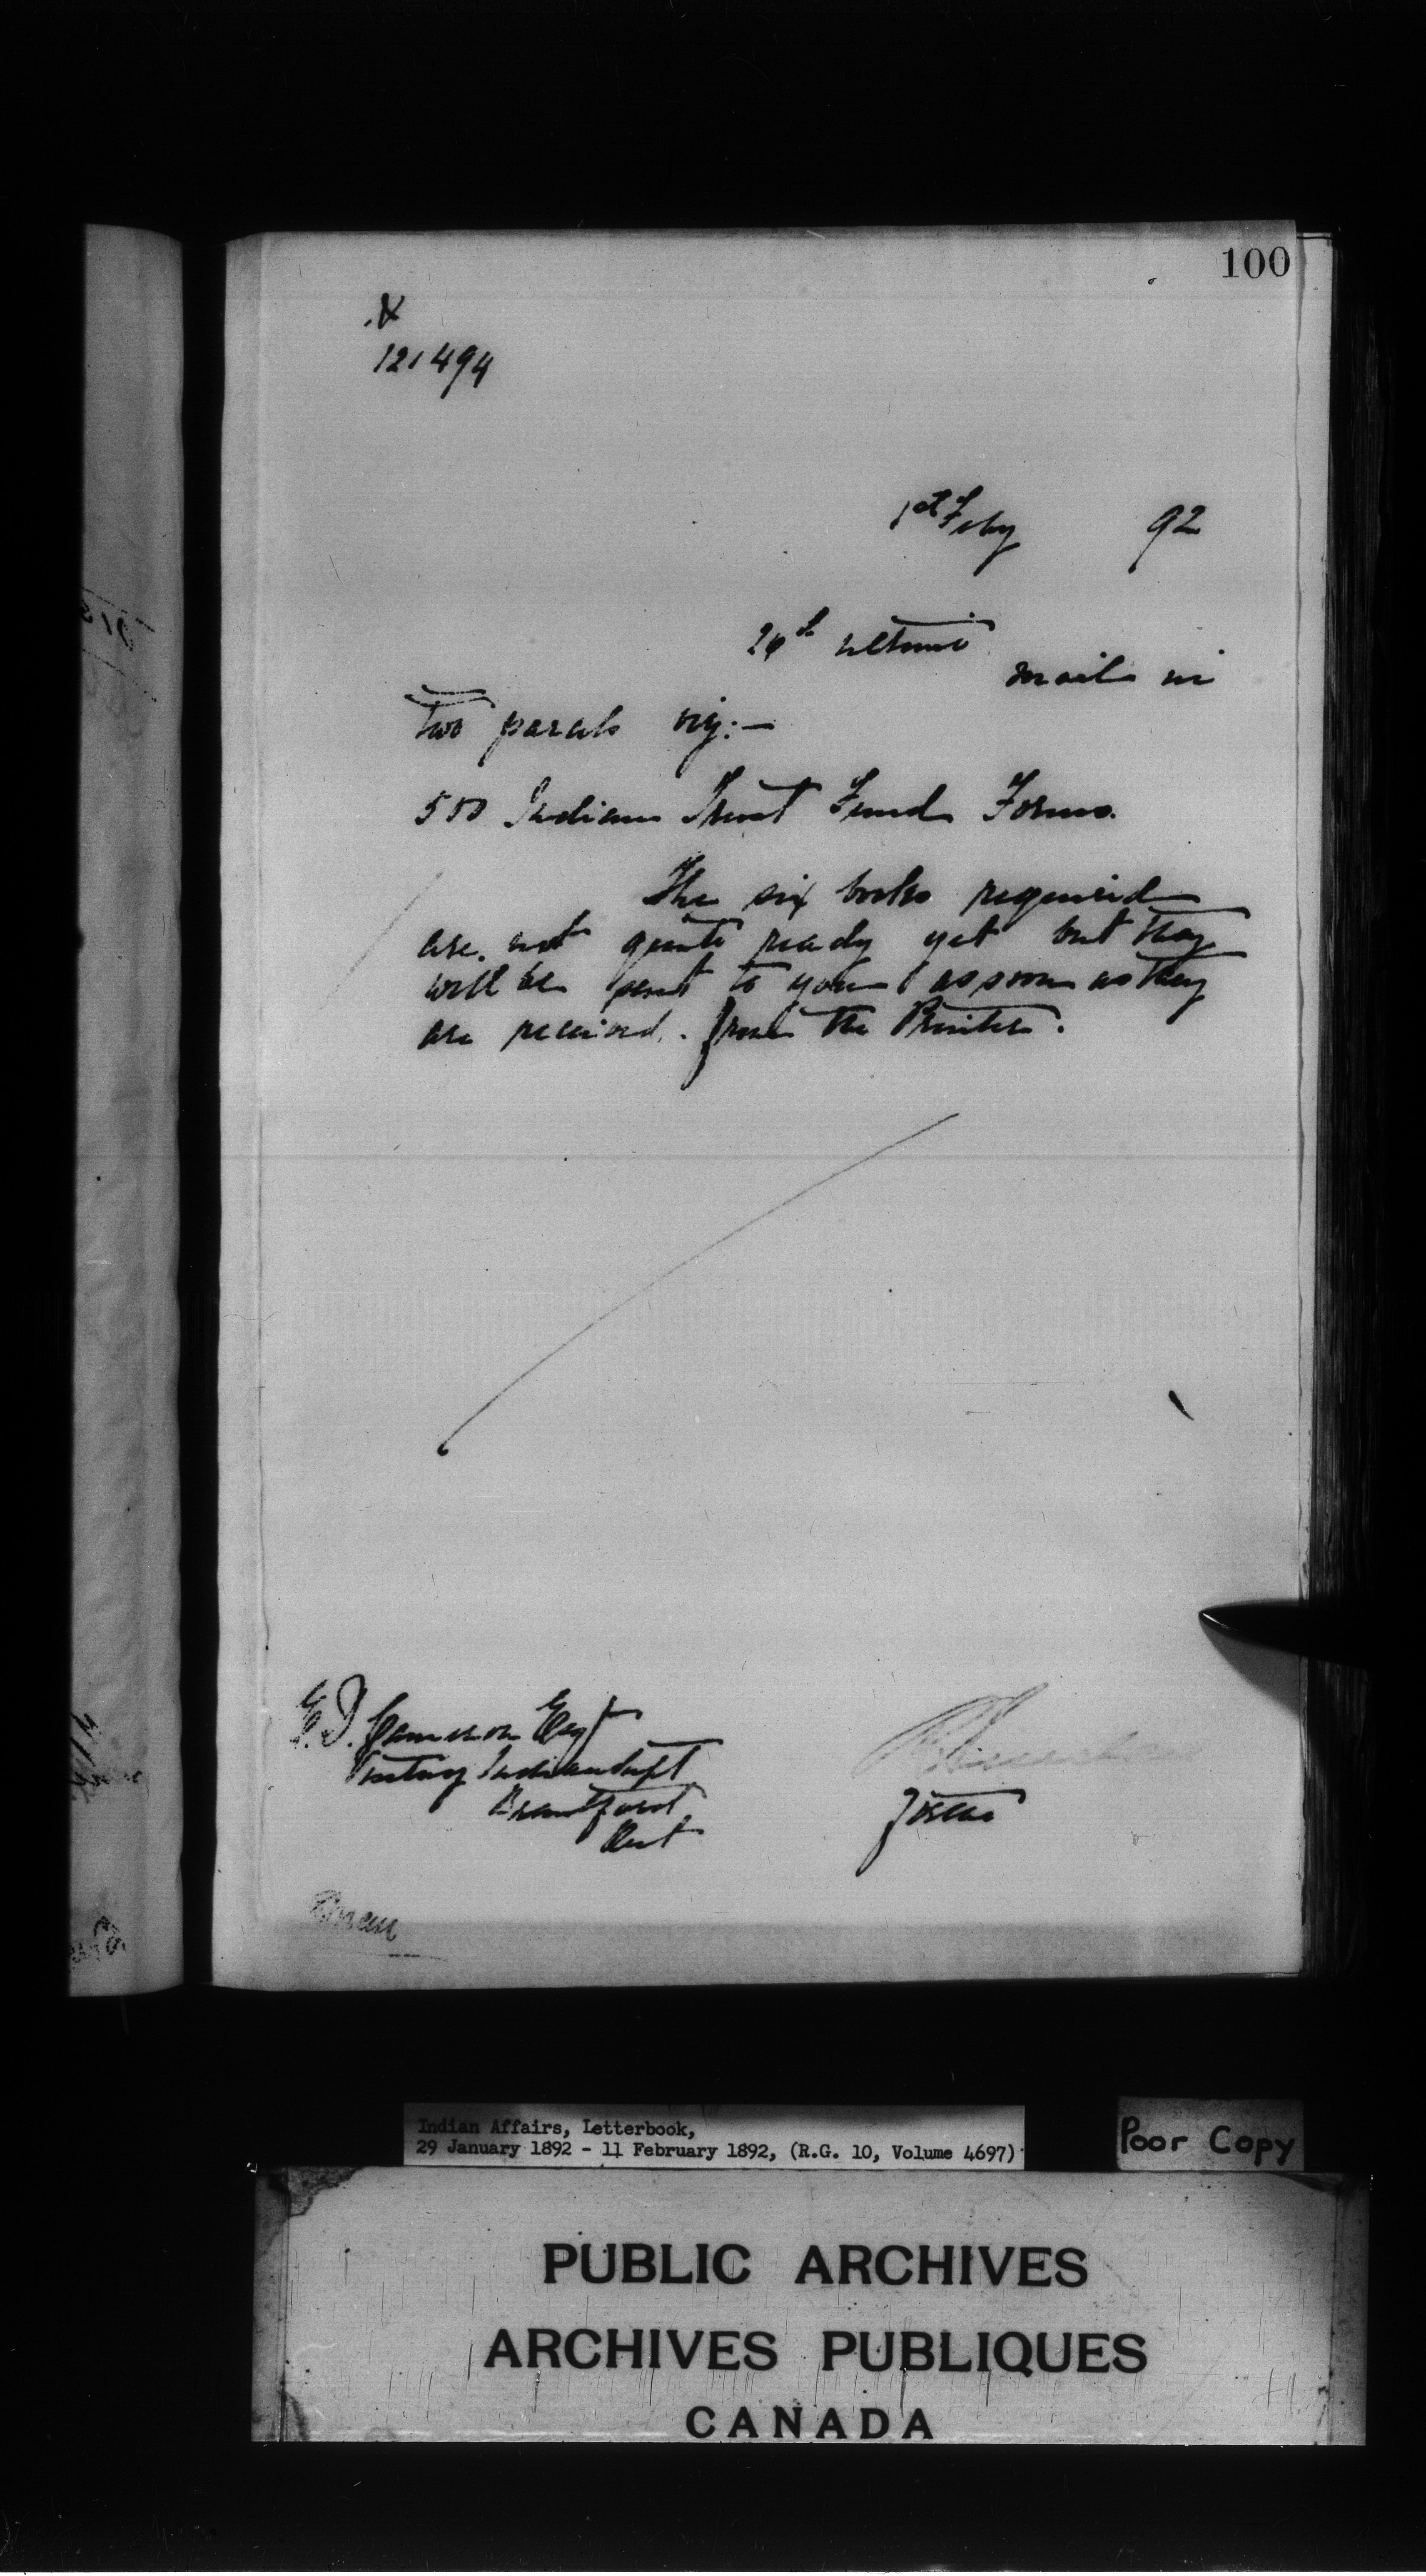 100
121494
1st Feby 92
ultimo
mail in
two parcels viz:—
500 Indian Trust Fund Forms.
The six books required
are not quite ready yet but they
will be sent to you as soon as they
are received from the Printer.
E.D. Cameron Esq
Visiting Indian Supt
Brantford
Ont
Indian Affairs, Letterbook,
29 January 1892 - 11 February 1892, (R.G. 10, Volume 4697)
Poor Copy
PUBLIC ARCHIVES
ARCHIVES PUBLIQUES
CANADA